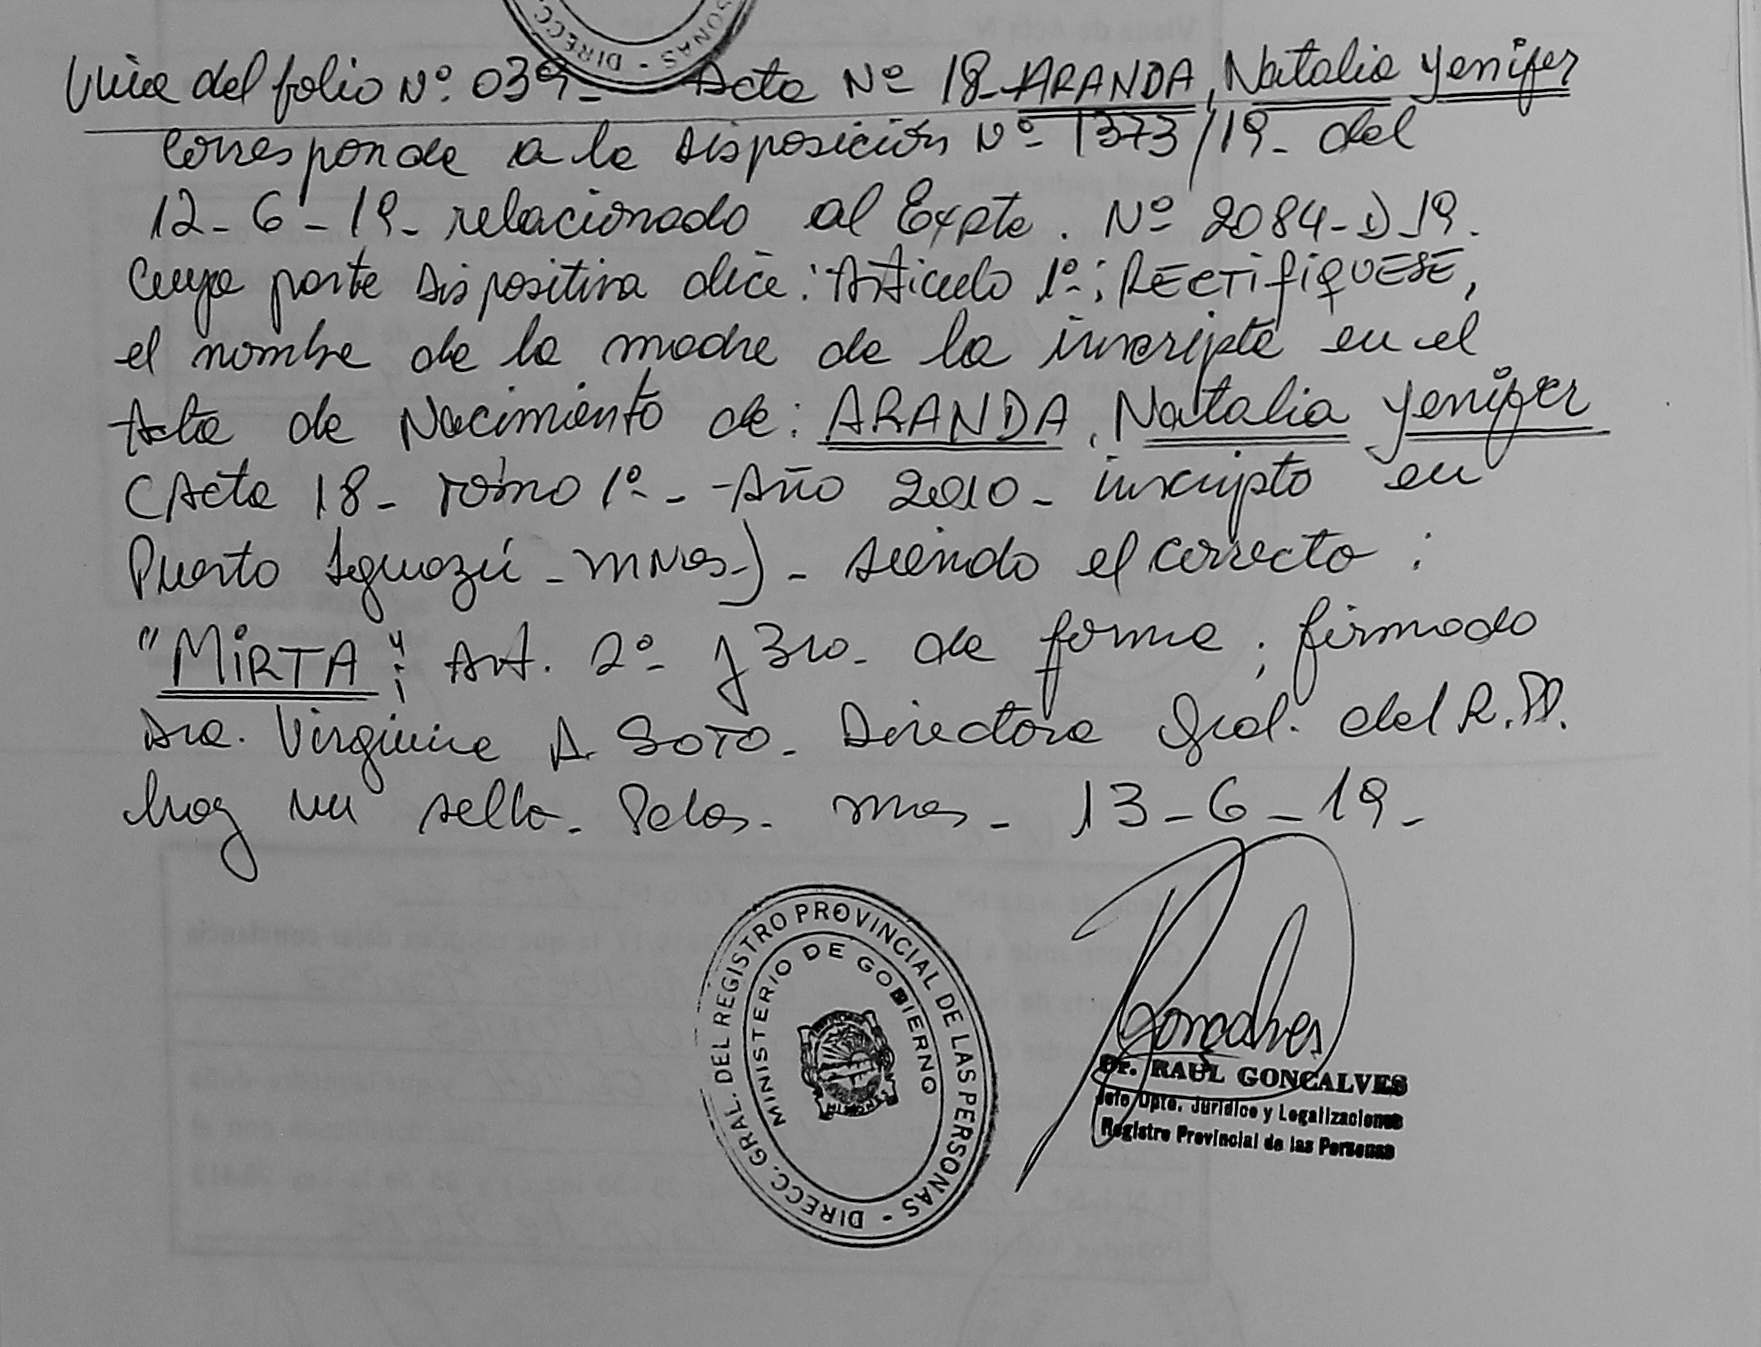 SONAS - DIRECC.
Viene del folio Nº 039 - Acta Nº 18 - ARANDA, Natalia Yenifer
Corresponde a la Disposición Nº 1373/19 - del
12 - 6 - 19 - relacionado al Expte. Nº 2084 - D - 19.
Cuya parte dispositiva dice: "Articulo 1º: RECTIFIQUESE,
el nombre de la madre de la inscripta en el
Acta de Nacimiento de: ARANDA, Natalia Yenifer
(Acta 18 - Tomo 1º - Año 2010 - inscripto en
Puerto Iguazú - Mnes -) - siendo el correcto:
"MIRTA"; Art. 2º y 3ro. de forma; firmado
Dra. Virginia A. SOTO - Directora Gral. del R.P.P.
hay un sello. Pdas. Mnes - 13 - 6 - 19 -
DIRECC. GRAL. DEL REGISTRO PROVINCIAL DE LAS PERSONAS -
MINISTERIO DE GOBIERNO
Goncalves
Dr. RAUL GONCALVES
Jefe Dpto. Jurídico y Legalizaciones
Registro Provincial de las Personas